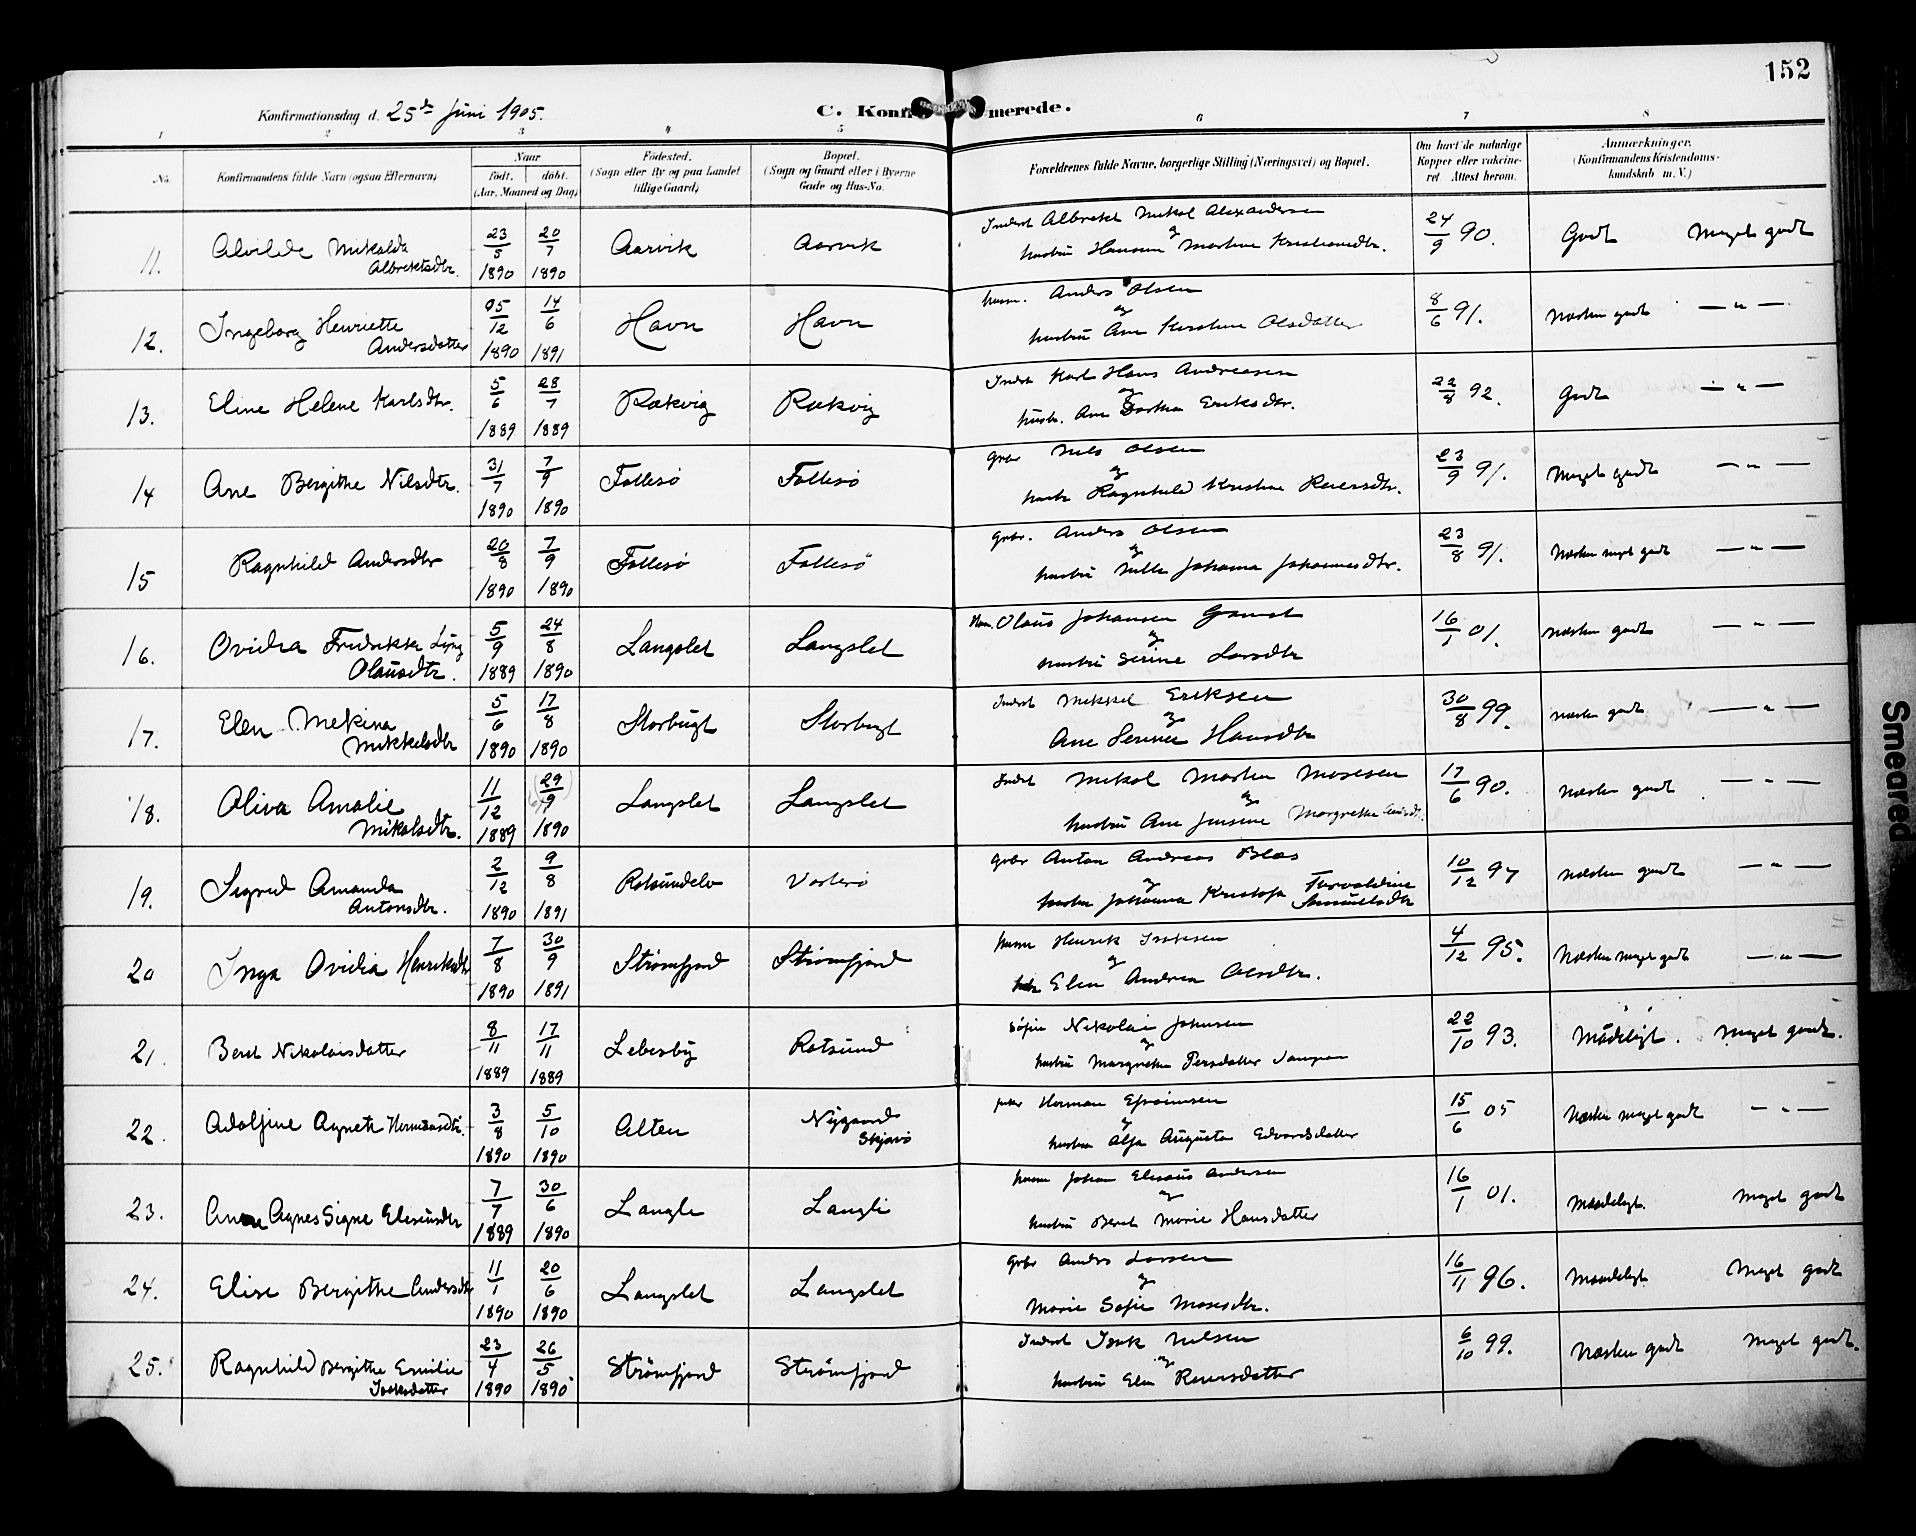 152
Konfirmationsdag d. 25de Juni 1905.
C. Konfirmerede.
1 2 3 4 5 6 7 8
No. Konfirmandens fulde Navn (ogsaa Efternavn) Naar født. døbt. (Aar, Maaned og Dag) Fødested. (Sogn eller By og paa Landet tillige Gaard) Bopæl. (Sogn og Gaard eller i Byerne Gade og Hus-No. Forældrenes fulde Navne, borgerlige Stilling (Næringsvei) og Bopæl. Om havt de naturlige Kopper eller vakcineret Attest herom. Anmærkninger. (Konfirmandens Kristendomskundskab m. V.)
11. Alvilde Mikalda Albrektsdtr. 23/5 1890 20/7 1890 Aarvik Aarvik Inderst Albrekt Mikal Alexandersen
og hustru Hansine Martine Kristiansdtr. 24/9 90. Godt Meget godt
12. Ingeborg Henriette Andersdatter 25/12 1890 14/6 1891 Havn Havn husm. Anders Olsen
og hustru Ane Kirstine Olsdatter 8/6 91. Næsten godt — " —
13. Eline Helene Karlsdtr. 5/6 1889 28/7 1889 Rækvig Rækvig Inderst Karl Hans Andreasen
og hustr. Ane Dorthea Eriksdtr. 22/8 92. Godt — " —
14 Ane Bergithe Nilsdtr. 31/7 1890 7/9 1890 Follesø Follesø gbr Nils Olsen
og hustr Ragnhild Kristine Reiersdtr. 23/9 91. Meget godt — " —
15 Ragnhild Andersdtr 20/8 1890 7/9 1890 Follesø Follesø gbr. Anders Olsen
og hustru Nille Johanna Johannesdtr. 23/8 91. Næsten meget godt — " —
16. Ovidia Fredrikke Lyng Olausdtr. 5/9 1889 24/8 1890 Langslet Langslet Hm. Olaus Johansen
og hustru Serine Larsdtr 16/1 01. Næsten godt — " —
17. Elen Mekina Mikkelsdtr 5/6 1890 17/8 1890 Storbugt Storbugt Inderst Mikkel Eriksen
og Ane Serine Hansdtr 30/8 99. Næsten godt — " —
18. Oliva Amalie Mikalsdtr. 11/12 1889 (29/9) 1890 Langslet Langslet Inderst Mikal Morten Mosesen
og hustru Ane Jensine Margrethe 17/6 90. Næsten godt — " —
19. Sigrid Amanda Antonsdtr. 2/12 1890 9/8 1891 Rotsundelv Vorterø gbr Anton Andreas Blæs
og hustru Johanna Kristofa Thorvaldine Samuelsdtr 10/12 97 Næsten godt — " —
20 Inga Ovidia Henriksdtr 7/8 1890 30/9 1891 Strømfjord Strømfjord husm Henrik Isaksen
og Elen Andrea Olsdtr. 4/12 95. Næsten meget godt — " —
21. Beret Nikolaisdatter 8/11 1889 17/11 1889 Lebesby Rotsund Nikolai Johnsen
og hustru Margrethe Persdatter 22/10 93. Mådeligt. Meget godt.
22. Adolfine Agnete Hermansdtr. 3/8 1890 5/10 1890 Alten Nygaard Skjervø Herman Efraimsen
og hustru Alfa Augusta Edvardsdatter 15/6 05 Næsten meget godt — " —
23. Anne Agnes Signe Eleseusdtr 7/7 1889 30/6 1890 Langli Langli husm Johan Eleseus Andersen
og hustru Beret Marie Hansdatter 16/1 01. Maadeligt. Meget godt
24. Elise Bergithe Andersdtr 11/1 1890 20/6 1890 Langslet Langslet gbr Anders Larsen
og Marie Sofie Mosesdtr. 16/11 96. Maadeligt Meget godt
25. Ragnhild Bergithe Emilie Isaksdatter 23/4 1890 26/5 1890 Strømfjord Strømfjord Inderst Isak Nilsen
og hustru Elen Reiersdatter 6/10 99. Næsten godt Meget godt.
Smeared